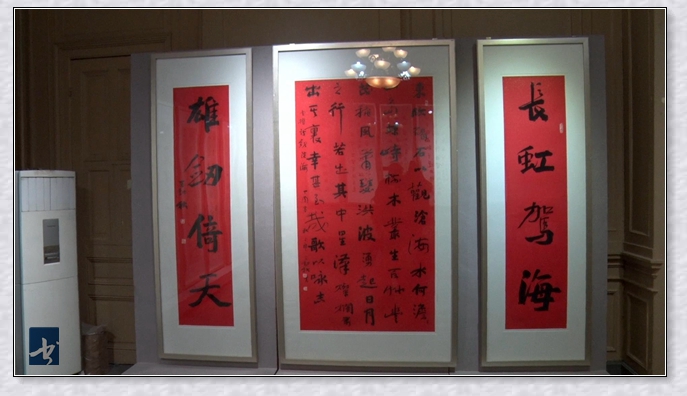 長虹駕海
東臨碣石以觀滄海水何澹
島竦峙樹木叢生百草豐
秋風蕭瑟洪波湧起日月
之行若出其中星漢燦爛若
出其裏幸甚至哉歌以詠志
雄劍倚天